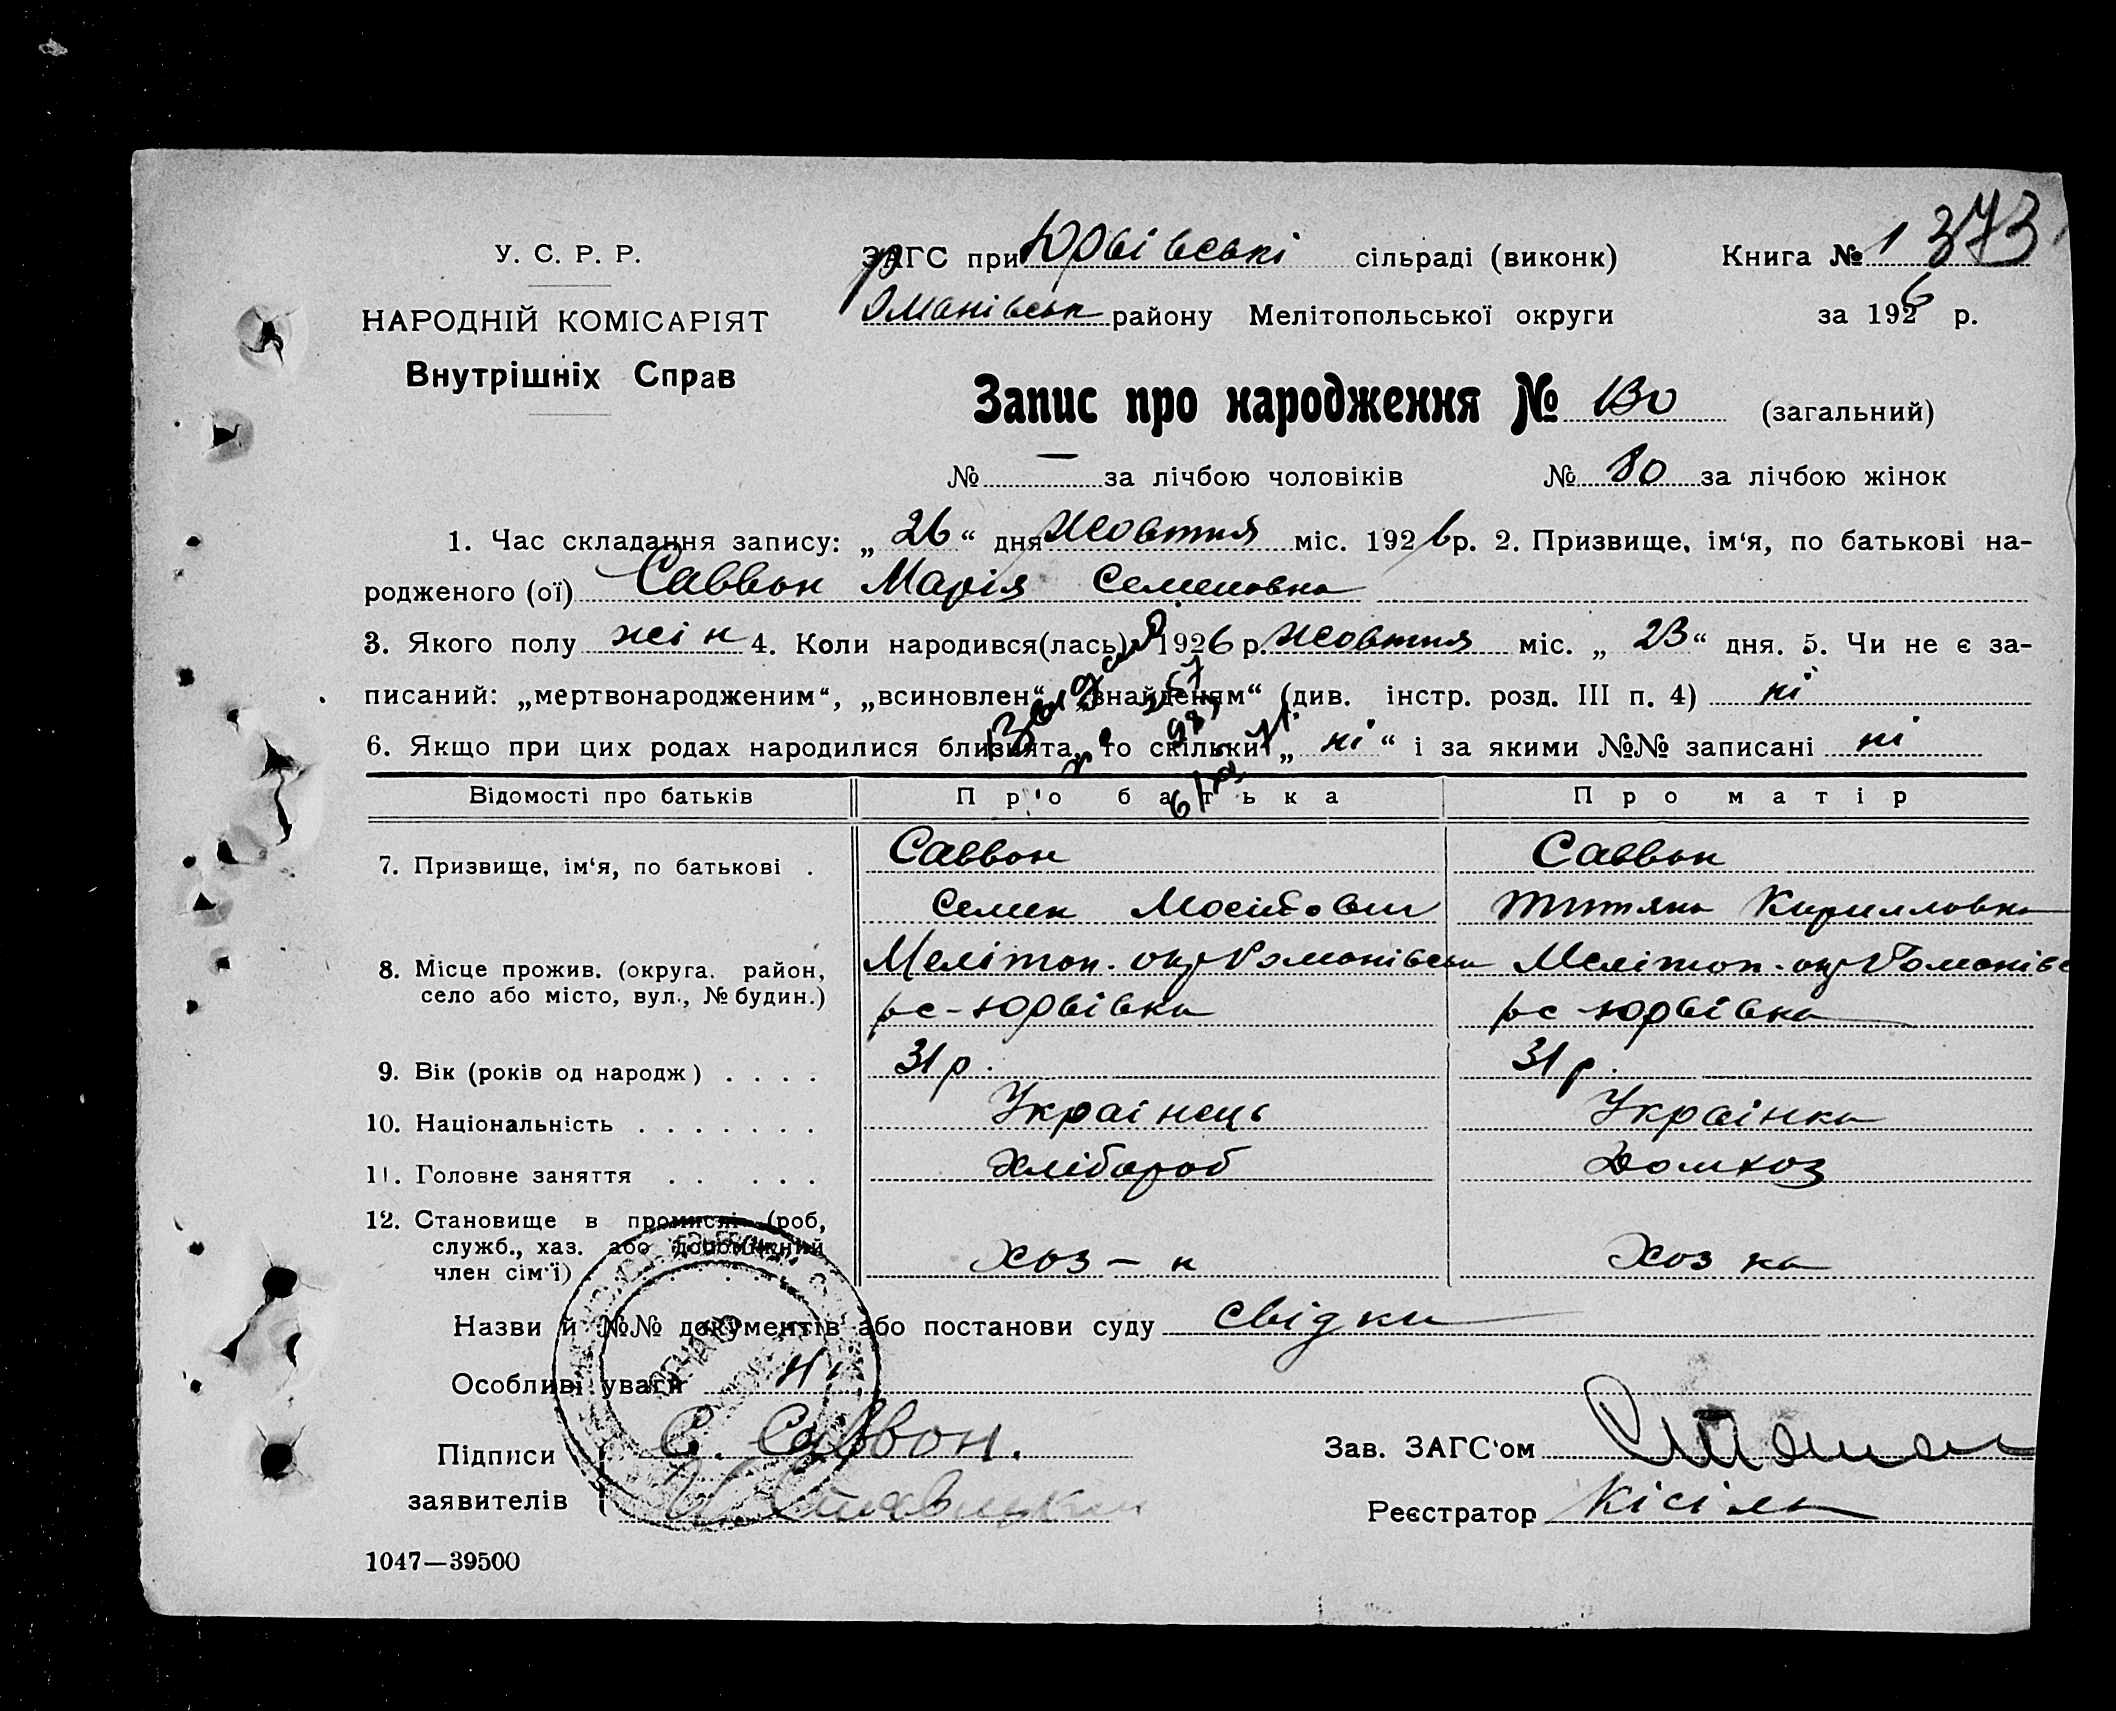 У. С. Р. Р.
НАРОДНІЙ КОМІСАРІЯТ
Внутрішніх Справ
ЗАГС при Юрвівські сільраді (виконк) Книга № 1 373
Романівськ району Мелітопольської округи за 1926 р.
Запис про народження № 130 (загальний)
№ — за лічбою чоловіків № 80 за лічбою жінок
1. Час складання запису: „ 26 “ дня Жовтня міс. 1926 р. 2. Призвище, ім‘я, по батькові на-
родженого (ої) Саввон Марія Семеновна
3. Якого полу жін 4. Коли народився(лась) 1926 р. Жовтня міс. „ 23 “ дня. 5. Чи не є за-
писаний: „мертвонародженим“, „всиновлен“, „знайденям“ (див. інстр. розд. III п. 4) ні
6. Якщо при цих родах народилися близнята, то скільки „ ні “ і за якими №№ записані ні
Відомості про батьків Про батька Про матір
7. Призвище, ім‘я, по батькові . Саввон Саввон
Семен Титяна Кирилловна
8. Місце прожив. (округа. район, Мелітоп. окр Романівськ Мелітоп. окр Романівс
село або місто, вул., № будин.) рс-Юрвівка рс Юрвівка
9. Вік (років од народж) . . . . 31 р. 31 р.
10. Національність . . . . . . . Українець Українка
11. Головне заняття . . . . . Хлібороб Домхоз
12. Становище в промислі (роб,
служб., хаз. або допоміжний
член сім‘ї) хоз – н Хоз ка
Назви й №№ документів або постанови суду свідки
Особливі уваги ні
Підписи С. Саввон. Зав. ЗАГС‘ом
заявителів Реєстратор Кісіль
1047—39500